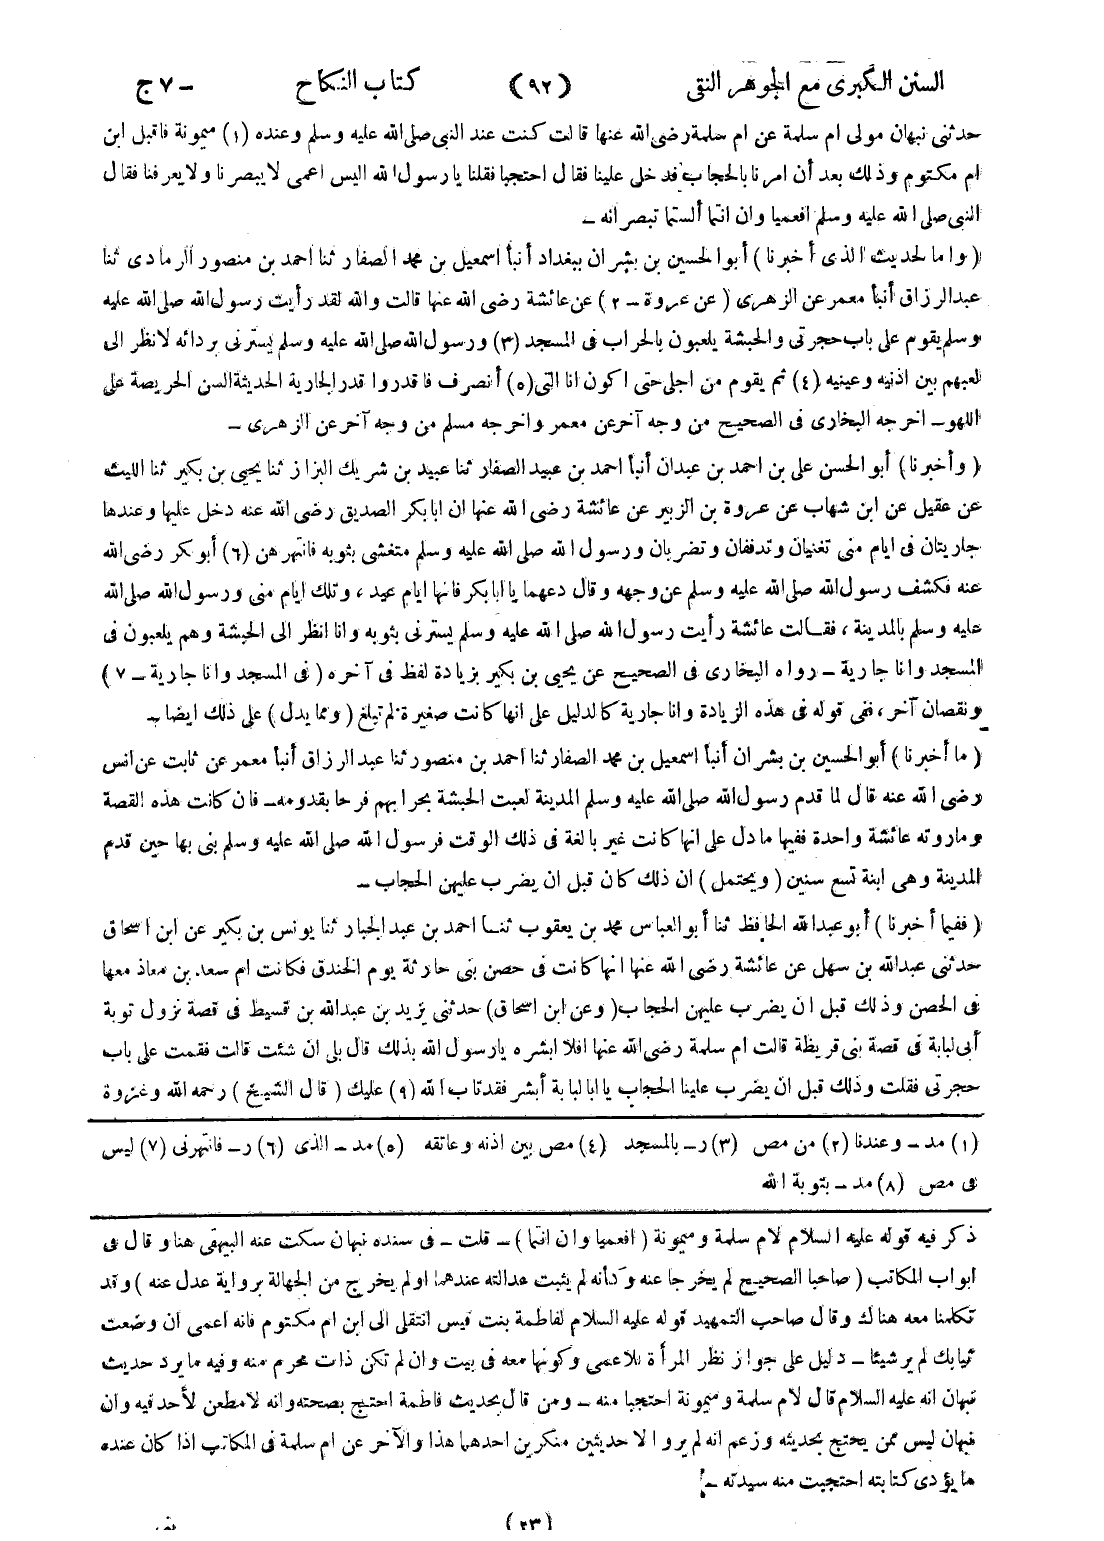 السنن الكبرى مع الجوهر النقى (٩٢) كتاب النكاح ج٧ –
حدثنى نبهان مولى ام سلمة عن ام سلمة رضى الله عنها قالت كنت عند النبى صلى الله عليه وسلم وعنده (١) ميمونة فاقبل ابن
ام مكتوم وذلك بعد أن امرنا بالحجاب فدخل علينا فقال احتجبا فقلنا يا رسول الله اليس اعمى لا يبصرنا ولا يعرفنا فقال
النبى صلى الله عليه وسلم افعميا وان انتما ألستما تبصرانه –
(واما الحديث الذى أخبرنا) أبو الحسين بن بشران ببغداد أنبأ اسمعيل بن محمد الصفار ثنا احمد بن منصور الرمادى ثنا
عبد الرزاق أنبأ معمر عن الزهرى (عن عروة – ٢) عن عائشة رضى الله عنها قالت والله لقد رأيت رسول الله صلى الله عليه
وسلم يقوم على باب حجرتى والحبشة يلعبون بالحراب فى المسجد (٣) ورسول الله صلى الله عليه وسلم يسترنى بردائه لانظر الى
لعبهم بين اذنيه وعينيه (٤) ثم يقوم من اجلى حتى اكون انا التى (٥) أنصرف فاقدروا قدر الجارية الحديثة السن الحريصة على
اللهو – اخرجه البخارى فى الصحيح من وجه آخر عن معمر واخرجه مسلم من وجه آخر عن الزهرى –
(وأخبرنا) أبو الحسن على بن احمد بن عبدان أنبأ احمد بن عبيد الصفار ثنا عبيد بن شريك البزاز ثنا يحيى بن بكير ثنا الليث
عن عقيل عن ابن شهاب عن عروة بن الزبير عن عائشة رضى الله عنها ان ابابكر الصديق رضى الله عنه دخل عليها وعندها
جاريتان فى ايام منى تغنيان وتدففان وتضربان ورسول الله صلى الله عليه وسلم متغشى بثوبه فانتهرهن (٦) أبو بكر رضى الله
عنه فكشف رسول الله صلى الله عليه وسلم عن وجهه وقال دعهما يا ابابكر فانها ايام عيد ، وتلك ايام منى ورسول الله صلى الله
عليه وسلم بالمدينة ، فقالت عائشة رأيت رسول الله صلى الله عليه وسلم يسترنى بثوبه وانا انظر الى الحبشة وهم يلعبون فى
المسجد وانا جارية – رواه البخارى فى الصحيح عن يحيى بن بكير بزيادة لفظ فى آخره (فى المسجد وانا جارية – ٧)
ونقصان آخر ، ففى قوله فى هذه الزيادة وانا جارية كالدليل على انها كانت صغيرة لم تبلغ (ومما يدل) على ذلك ايضا –
(ما أخبرنا) أبو الحسين بن بشران أنبأ اسمعيل بن محمد الصفار ثنا احمد بن منصور ثنا عبد الرزاق أنبأ معمر عن ثابت عن انس
رضى الله عنه قال لما قدم رسول الله صلى الله عليه وسلم المدينة لعبت الحبشة بحرابهم فرحا بقدومه – فان كانت هذه القصة
وماروته عائشة واحدة ففيها مادل على انها كانت غير بالغة فى ذلك الوقت فرسول الله صلى الله عليه وسلم بنى بها حين قدم
المدينة وهى ابنة تسع سنين (ويحتمل) ان ذلك كان قبل ان يضرب عليهن الحجاب –
(ففيما أخبرنا) أبو عبدالله الحافظ ثنا أبو العباس محمد بن يعقوب ثنا احمد بن عبدالجبار ثنا يونس بن بكير عن ابن اسحاق
حدثنى عبدالله بن سهل عن عائشة رضى الله عنها انها كانت فى حصن بنى حارثة يوم الخندق فكانت ام سعد بن معاذ معها
فى الحصن وذلك قبل ان يضرب عليهن الحجاب (وعن ابن اسحاق) حدثنى يزيد بن عبدالله بن قسيط فى قصة نزول توبة
أبى لبابة فى قصة بنى قريظة قالت ام سلمة رضى الله عنها افلا ابشره يا رسول الله بذلك قال بلى ان شئت قالت فقمت على باب
حجرتى فقلت وذلك قبل ان يضرب علينا الحجاب يا ابا لبابة أبشر فقد تاب الله (٩) عليك (قال الشيخ) رحمه الله وغزوة
(١) مد – وعندنا (٢) من مص (٣) ر – بالمسجد (٤) مص بين اذنه وعاتقه (٥) مد – الذى (٦) ر – فانتهرنى (٧) ليس
فى مص (٨) مد – بتوبة الله
ذكر فيه قوله عليه السلام لام سلمة وميمونة (افعميا وان انتما) – قلت – فى سنده نبهان سكت عنه البيهقى هنا وقال فى
ابواب المكاتب (صاحبا الصحيح لم يخرجا عنه وكأنه لم يثبت عدالته عندهما او لم يخرج من الجهالة برواية عدل عنه) وقد
تكلمنا معه هناك وقال صاحب التمهيد قوله عليه السلام لفاطمة بنت قيس انتقلى الى ابن ام مكتوم فانه اعمى ان وضعت
ثيابك لم ير شيئا – دليل على جواز نظر المرأة للاعمى وكونها معه فى بيت وان لم تكن ذات محرم منه وفيه ما يرد حديث
نبهان انه عليه السلام قال لام سلمة وميمونة احتجبا منه – ومن قال بحديث فاطمة احتج بصحته وانه لا مطعن لأحد فيه وان
نبهان ليس ممن يحتج بحديثه وزعم انه لم يرو الا حديثين منكرين احدهما هذا والآخر عن ام سلمة فى المكاتب اذا كان عنده
ما يؤدى كتابته احتجبت منه سيدته –
(٢٣)